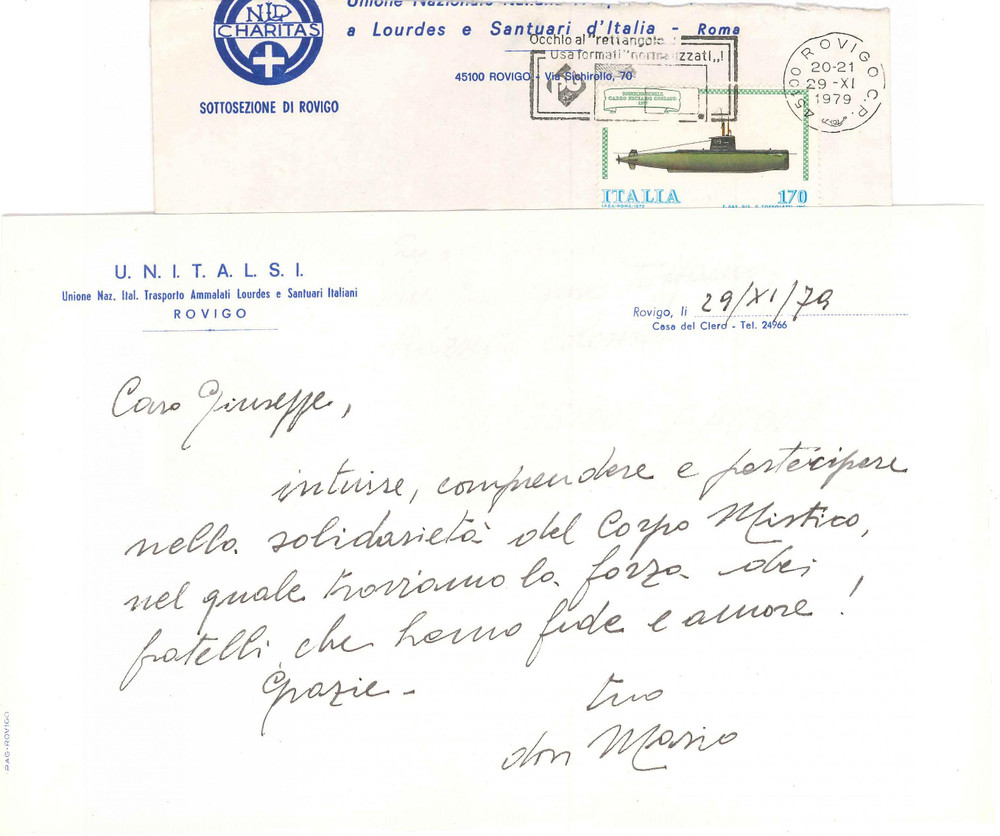 NLP
CHARITAS
SOTTOSEZIONE DI ROVIGO
Unione Nazionale Italiana
a Lourdes e Santuari d'Italia - Roma
45100 ROVIGO - Via Sichirollo, 70
Occhio al "rettangolo
Usa formati "normalizzati„!
45100 ROVIGO C.P.
20-21
29-XI
1979
ITALIA 170
U. N. I. T. A. L. S. I.
Unione Naz. Ital. Trasporto Ammalati Lourdes e Santuari Italiani
ROVIGO
Rovigo, li 29/XI/79
Casa del Clero - Tel. 24966
Caro Giuseppe,
intuire, comprendere e partecipare
nella solidarietà del Corpo Mistico,
nel quale troviamo la forza dei
fratelli che hanno fede e amore!
Grazie -
tuo
don Mario
PAG-ROVIGO